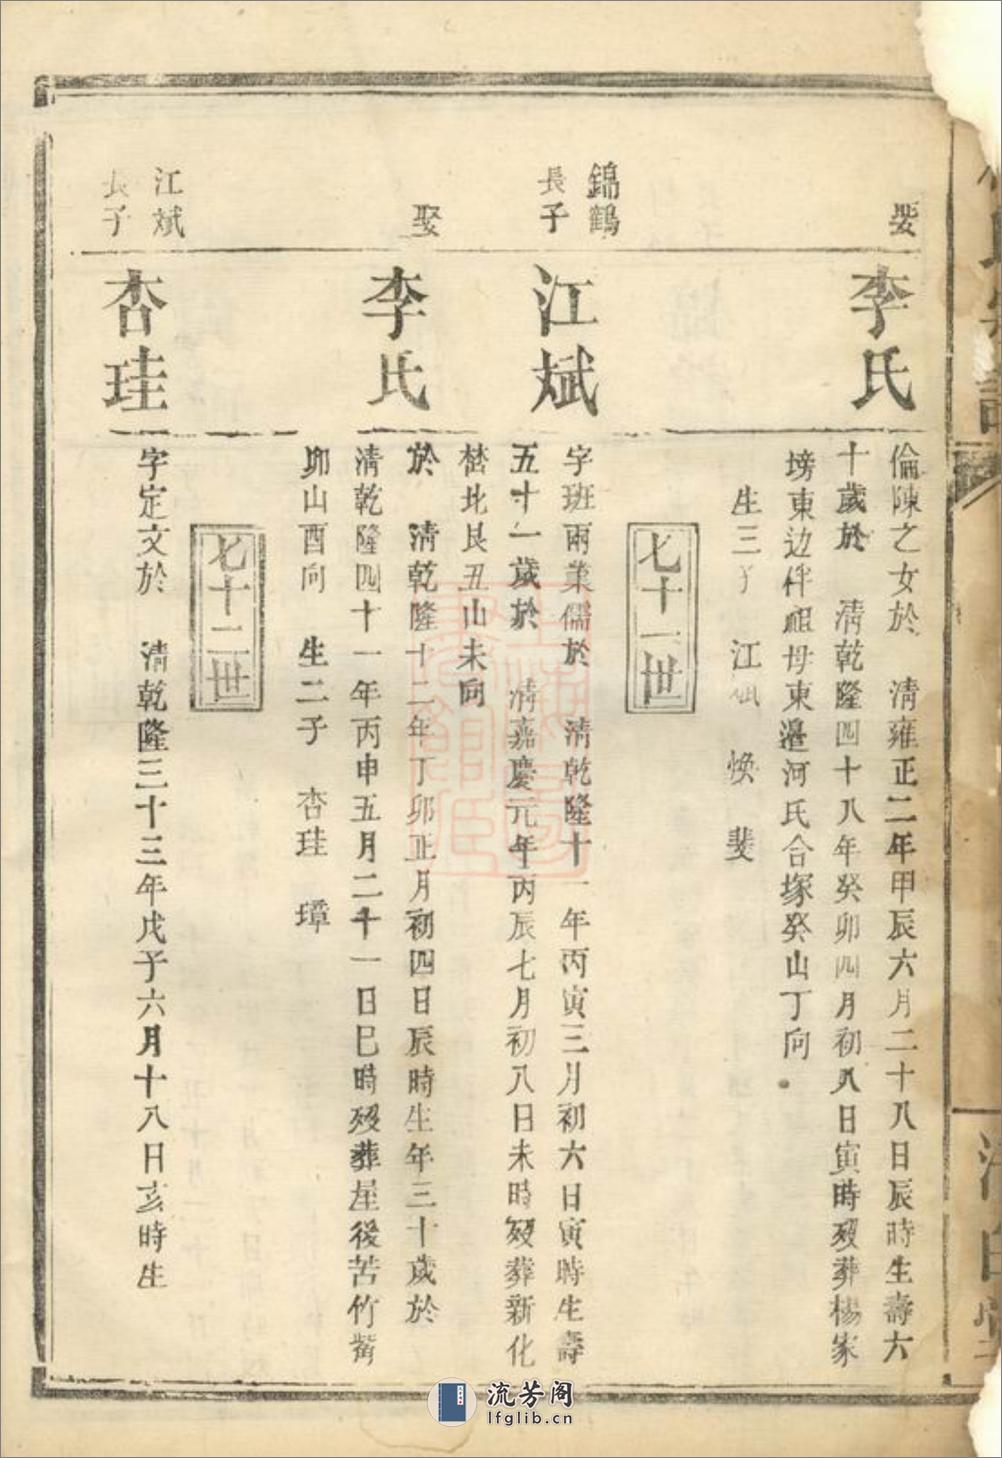 娶
李氏
倫陳之女於 清雍正二年甲辰六月二十八日辰時生壽六
十歲於 清乾隆四十八年癸卯四月初八日寅時歿葬楊家
塝東边伴祖母東邉河氏合塚癸山丁向
生三子 江斌 煥 斐
七十一世
錦鶴
長子
江斌
字班兩業儒於 清乾隆十一年丙寅三月初六日寅時生壽
五十一歲於 清嘉慶元年丙辰七月初八日未時歿葬新化
楚北艮丑山未向
娶
李氏
於 清乾隆十二年丁卯正月初四日辰時生年三十歲於
清乾隆四十一年丙申五月二十一日巳時歿葬屋後苦竹嘴
卯山酉向 生二子 杏珪 璋
七十二世
江斌
長子
杏珪
字定文於 清乾隆三十三年戊子六月十八日亥時生
流芳阁
lfglib.cn